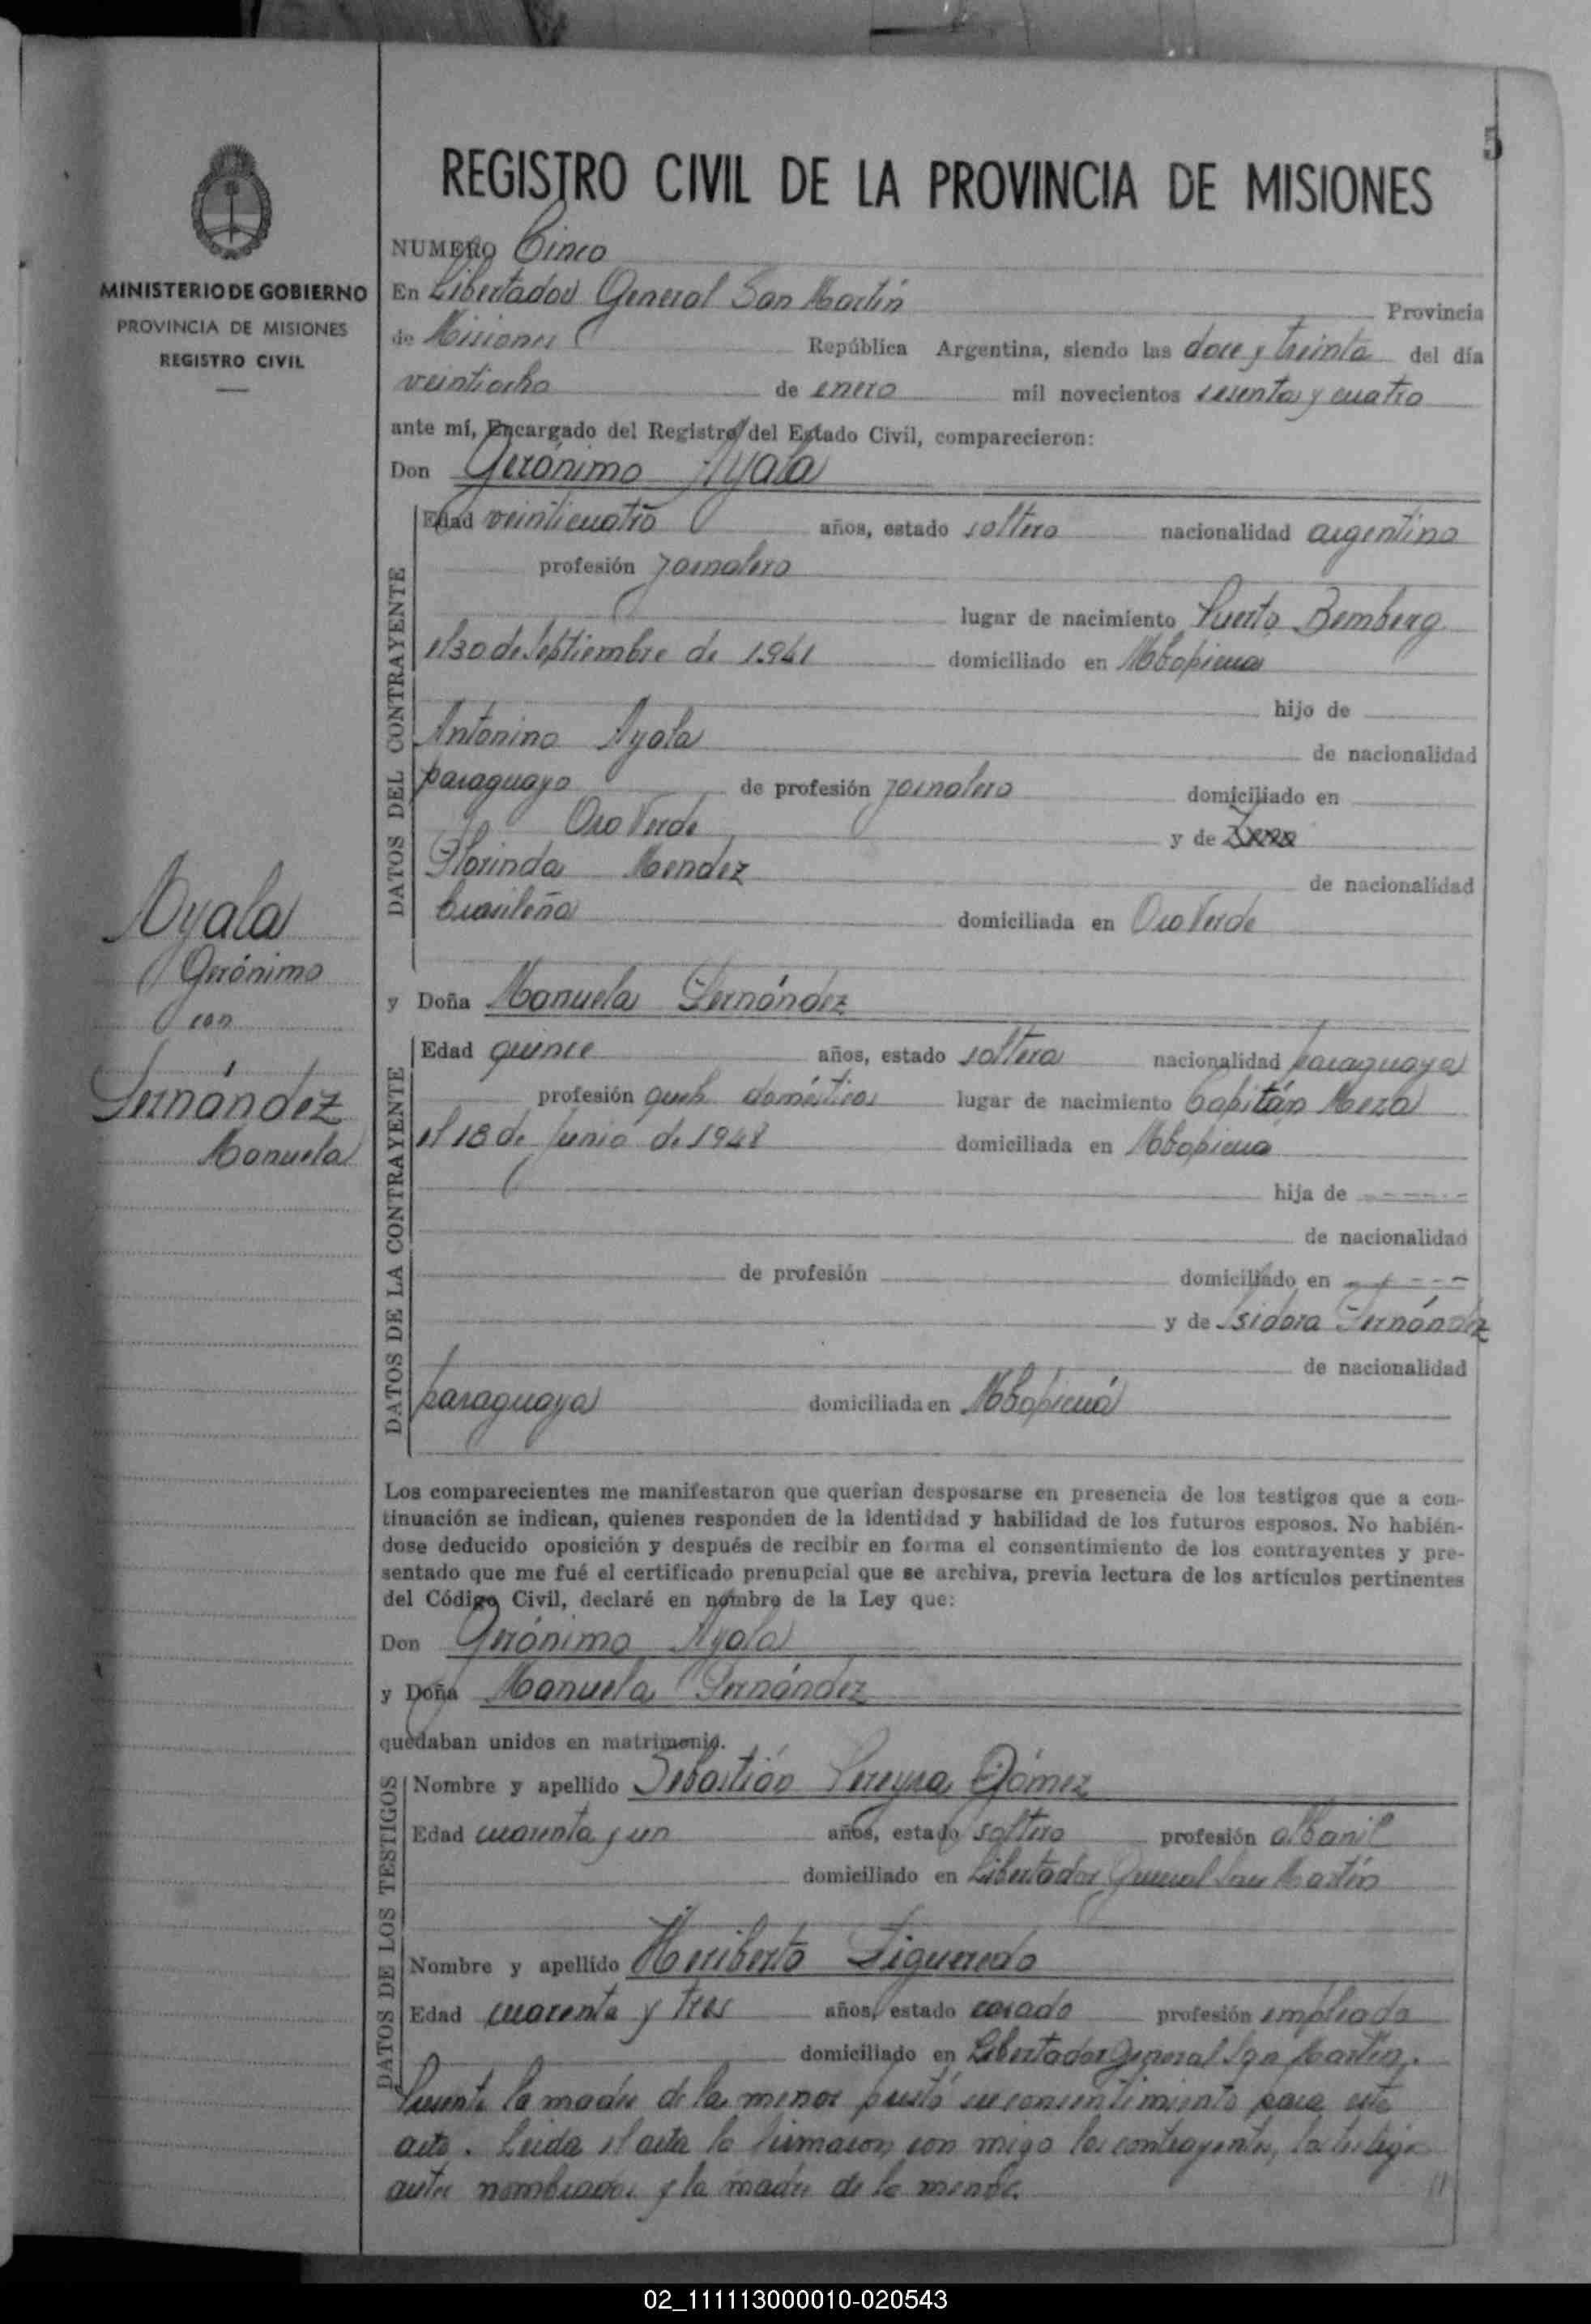 5
REGISTRO CIVIL DE LA PROVINCIA DE MISIONES
MINISTERIO DE GOBIERNO
PROVINCIA DE MISIONES
REGISTRO CIVIL
Ayala
Gerónimo
con
Fernández
Manuela
NUMERO Cinco
En Libertador General San Martín Provincia
de Misiones República Argentina, siendo las doce y treinta del día
veintiocho de enero mil novecientos sesenta y cuatro
ante mí, Encargado del Registro del Estado Civil, comparecieron:
Don Gerónimo Ayala
DATOS DEL CONTRAYENTE
Edad veinticuatro años, estado soltero nacionalidad argentino
profesión jornalero
lugar de nacimiento Puerto Bemberg
el 30 de Septiembre de 1941 domiciliado en Mbopicua
hijo de
Antonino Ayala de nacionalidad
paraguayo de profesión jornalero domiciliado en
Oro Verde y de
Florinda Mendez de nacionalidad
brasileña domiciliada en Oro Verde
y Doña Manuela Fernández
DATOS DE LA CONTRAYENTE
Edad quince años, estado soltera nacionalidad paraguaya
profesión queh. domésticos lugar de nacimiento Capitán Meza
el 18 de Junio de 1948 domiciliada en Mbopicua
hija de
de nacionalidad
de profesión domiciliado en
y de Isidora Fernández
de nacionalidad
paraguaya domiciliada en Mbopicuá
Los comparecientes me manifestaron que querían desposarse en presencia de los testigos que a con-
tinuación se indican, quienes responden de la identidad y habilidad de los futuros esposos. No habién-
dose deducido oposición y después de recibir en forma el consentimiento de los contrayentes y pre-
sentado que me fué el certificado prenupcial que se archiva, previa lectura de los artículos pertinentes
del Código Civil, declaré en nombre de la Ley que:
Don Gerónimo Ayala
y Doña Manuela Fernández
quedaban unidos en matrimonio.
DATOS DE LOS TESTIGOS
Nombre y apellido Sebastián Pereyra Gómez
Edad cuarenta y un años, estado soltero profesión albanil
domiciliado en Libertador General San Martín
Nombre y apellido Heriberto Figueredo
Edad cuarenta y tres años, estado casado profesión empleado
domiciliado en Libertador General San Martín.
Presente la madre de la menor prestó su consentimiento para este
acto. Leida el acta la firmaron con migo los contrayentes, los testigos
antes nombrados y la madre de la menor.
02_111113000010-020543